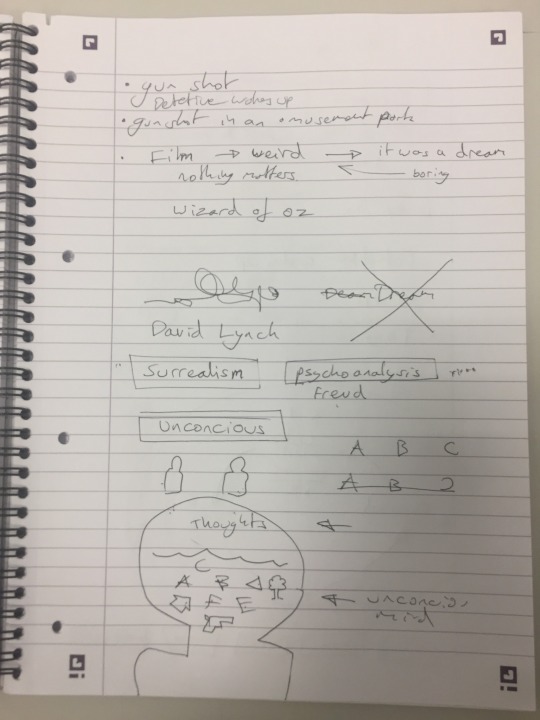 • gun shot
Detective wakes up
• gunshot in an amusement park
• Film → weird → it was a dream
nothing matters. ← boring
Wizard of oz
Dream
David Lynch
Surrealism psychoanalysis
Freud
Unconcious
A B C
A B 2
Thoughts ←
C
A B
F E ← unconcious
mind